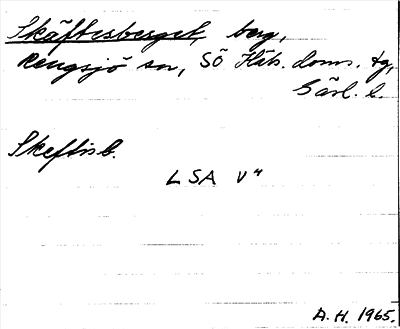 Skäftesberget, berg,
Rengsjö sn, SÖ Häls. doms. tg,
Gävl. l.
Skeftisb.
LSA V"
A.H. 1965.